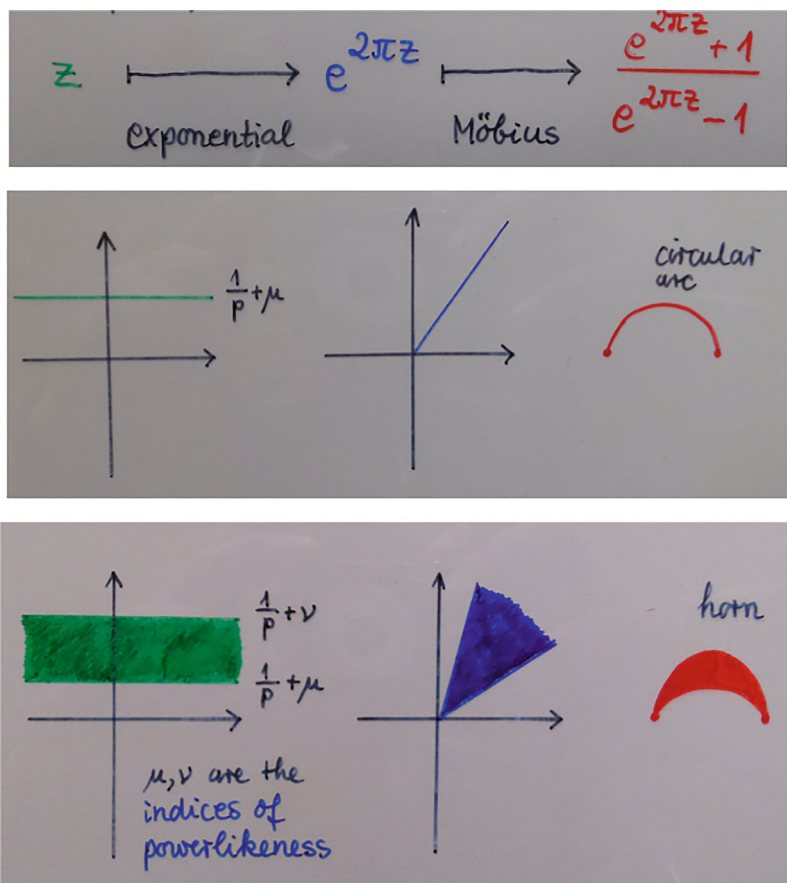 z ⟼ e^{2πz} ⟼ \frac{e^{2πz}+1}{e^{2πz}-1}
exponential Möbius
circular
arc
\frac{1}{p}+μ
horn
\frac{1}{p}+ν
\frac{1}{p}+μ
μ,ν are the
indices of
powerlikeness